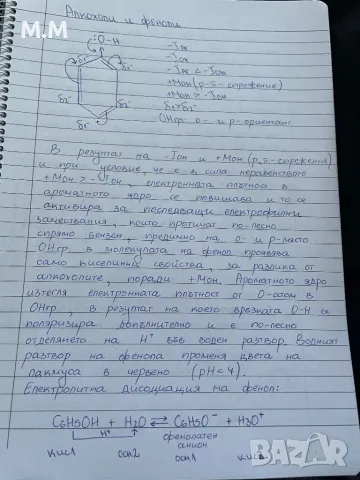 M.M
Алкохоли и феноли
:Ö-H
-Iон
δ1⁻
δ1⁻
δ2⁻
δ2⁻
δ1⁻
+Mон (p-π-спрежение)
+Mон > -Iон
δ1>δ2
OHгр: о- и р-ориентант
В резултат на -Iон и +Mон (p,π-спрежение)
и при условие, че е в сила неравенството
+Mон > -Iон, електронната плътност в
ароматното ядро се повишава и то се
активира за последващи електрофилни
замествания, които протичат по-лесно
спрямо бензен, предимно на о- и р-място
OHгр. в молекулата на фенол проявява
само киселинни свойства, за разлика от
алкохолите, поради +Mон. Ароматното ядро
изтегля електронната плътност от О-атом в
OHгр, в резултат на което връзката О-Н се
поляризира допълнително и е по-лесно
отделянето на H⁺ във воден разтвор. Водният
разтвор на фенола променя цвета на
лакмуса в червено (pH<4).
Електролитна дисоциация на фенол:
C6H5OH + H2O ⇄ C6H5O⁻ + H3O⁺
H⁺
фенолатен
анион
кис1 осн2 осн1 кис2
bazar